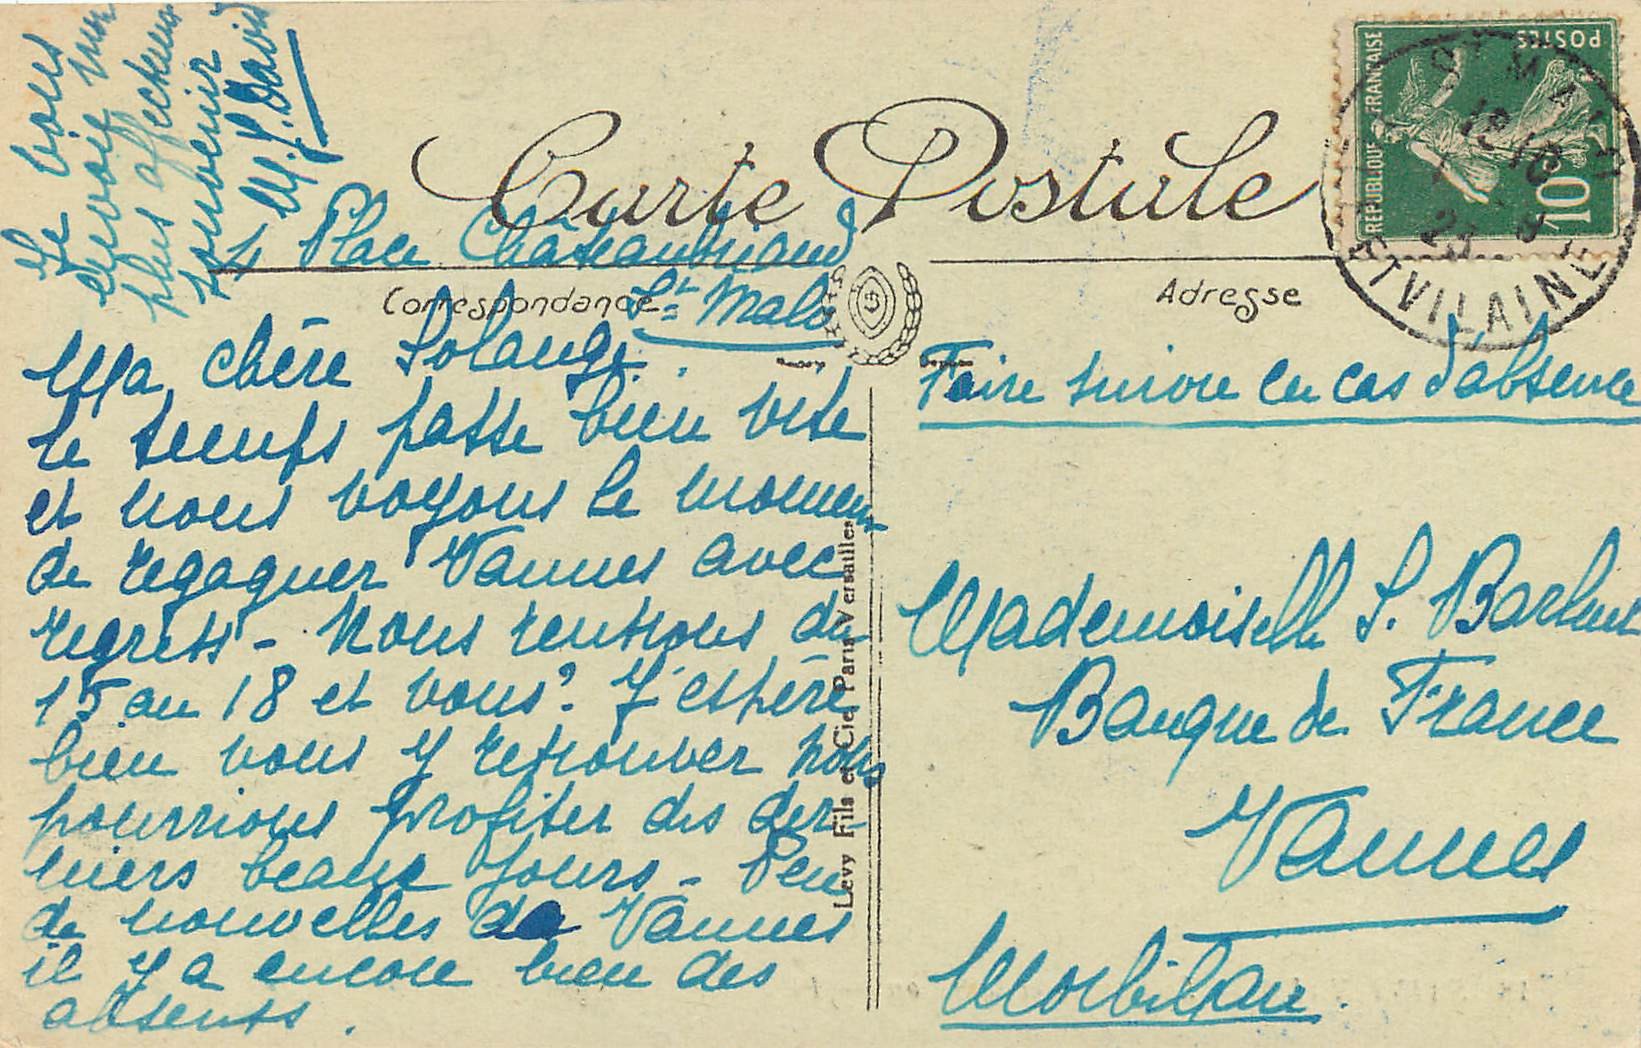 Carte Postale
Correspondance
Adresse
4 Place Châteaubriand
St Malo
Ma chère Solange.
le temps passe bien vite
et nous voyons le moment
de regagner Vannes avec
regrets - Nous rentrons du
15 au 18 et vous? J'espère
bien vous y retrouver nous
pourrions profiter des der-
niers beaux jours - Peu
de nouvelles de Vannes
il y a encore bien des
absents.
Je vous
envoie mon
plus affectueux
souvenir
M. J. David
Faire suivre en cas d'absence
Mademoiselle S.
Banque de France
Vannes
Morbihan.
Levy Fils et Cie Paris Versailles
REPUBLIQUE FRANÇAISE
POSTES
10
ST MALO
ET VILAINE